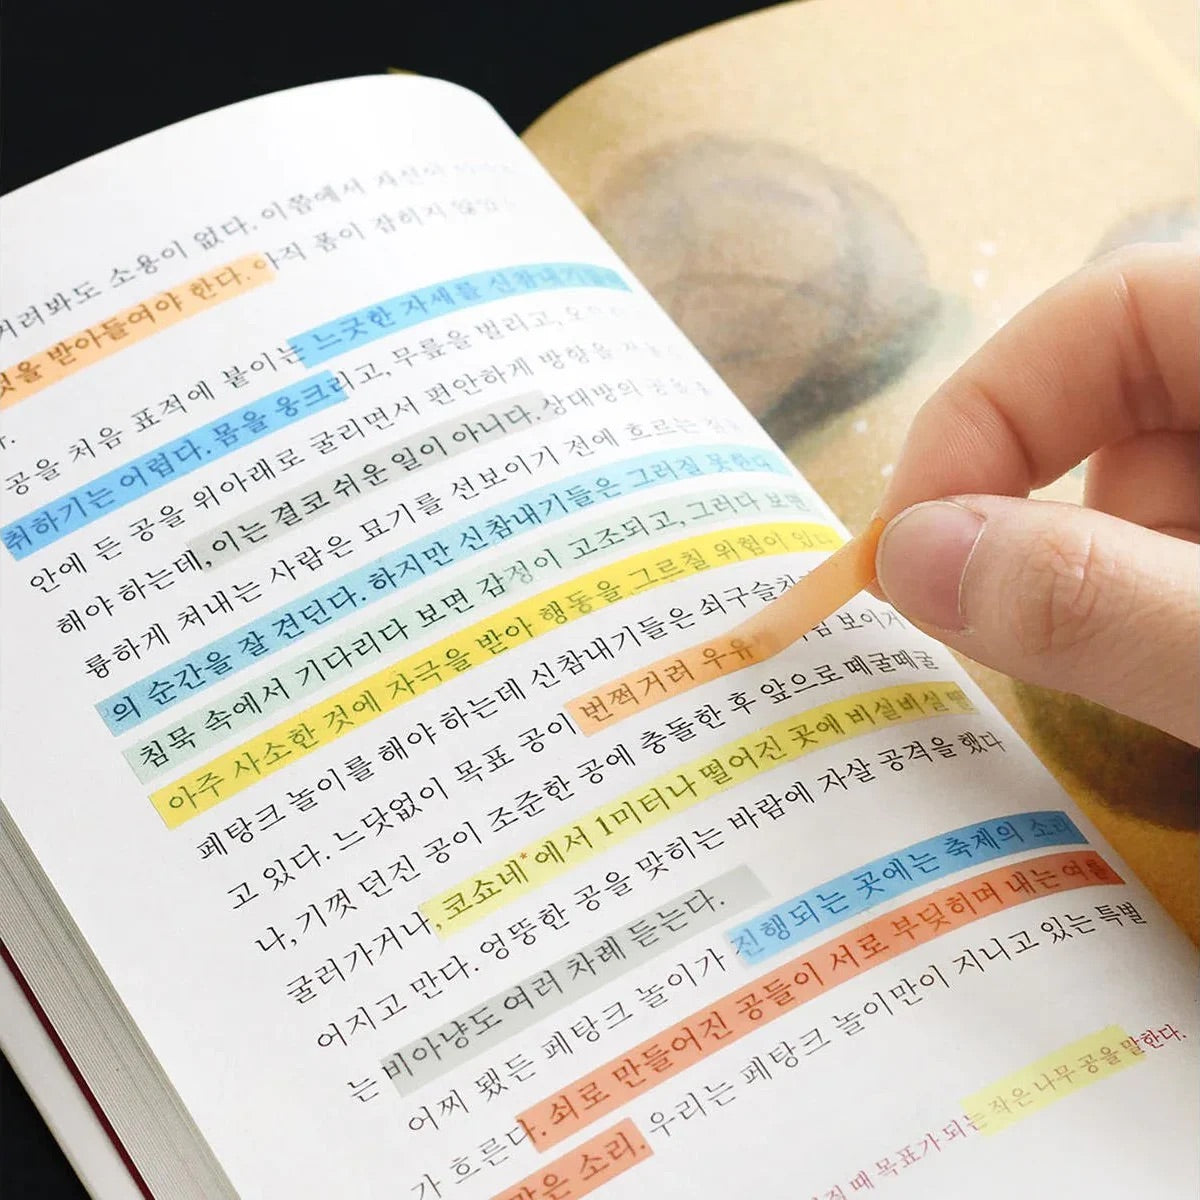 거려봐도 소용이 없다. 이쯤에서 자신의
것을 받아들여야 한다. 아직 폼이 잡히지
공을 처음 표적에 붙이는 느긋한 자세를 신참내기들이
취하기는 어렵다. 몸을 웅크리고, 무릎을 벌리고,
안에 든 공을 위아래로 굴리면서 편안하게 방향을
해야 하는데, 이는 결코 쉬운 일이 아니다. 상대방의 공을
륭하게 쳐내는 사람은 묘기를 선보이기 전에 흐르는
의 순간을 잘 견딘다. 하지만 신참내기들은 그러질 못한다.
침묵 속에서 기다리다 보면 감정이 고조되고, 그러다 보면
아주 사소한 것에 자극을 받아 행동을 그르칠 위험이 있다.
페탕크 놀이를 해야 하는데 신참내기들은
고 있다. 느닷없이 목표 공이 번쩍거려 보이거
나, 기껏 던진 공이 조준한 공에 충돌한 후 앞으로 떼굴떼굴
굴러가거나, 코쇼네*에서 1미터나 떨어진 곳에 비실비실 떨
어지고 만다. 엉뚱한 공을 맞히는 바람에 자살 공격을 했다
는 비아냥도 여러 차례 듣는다.
어찌 됐든 페탕크 놀이가 진행되는 곳에는 축제의 소리
가 흐른다. 쇠로 만들어진 공들이 서로 부딪히며 내는 여름
맑은 소리. 우리는 페탕크 놀이만이 지니고 있는 특별
때 목표가 되는 작은 나무 공을 말한다.